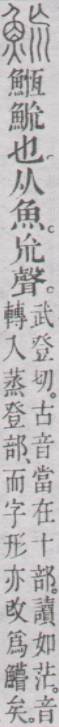 也。从魚。聲。
武登切。古音當在十部。讀如茫。音
轉入蒸登部、而字形亦改爲矣。